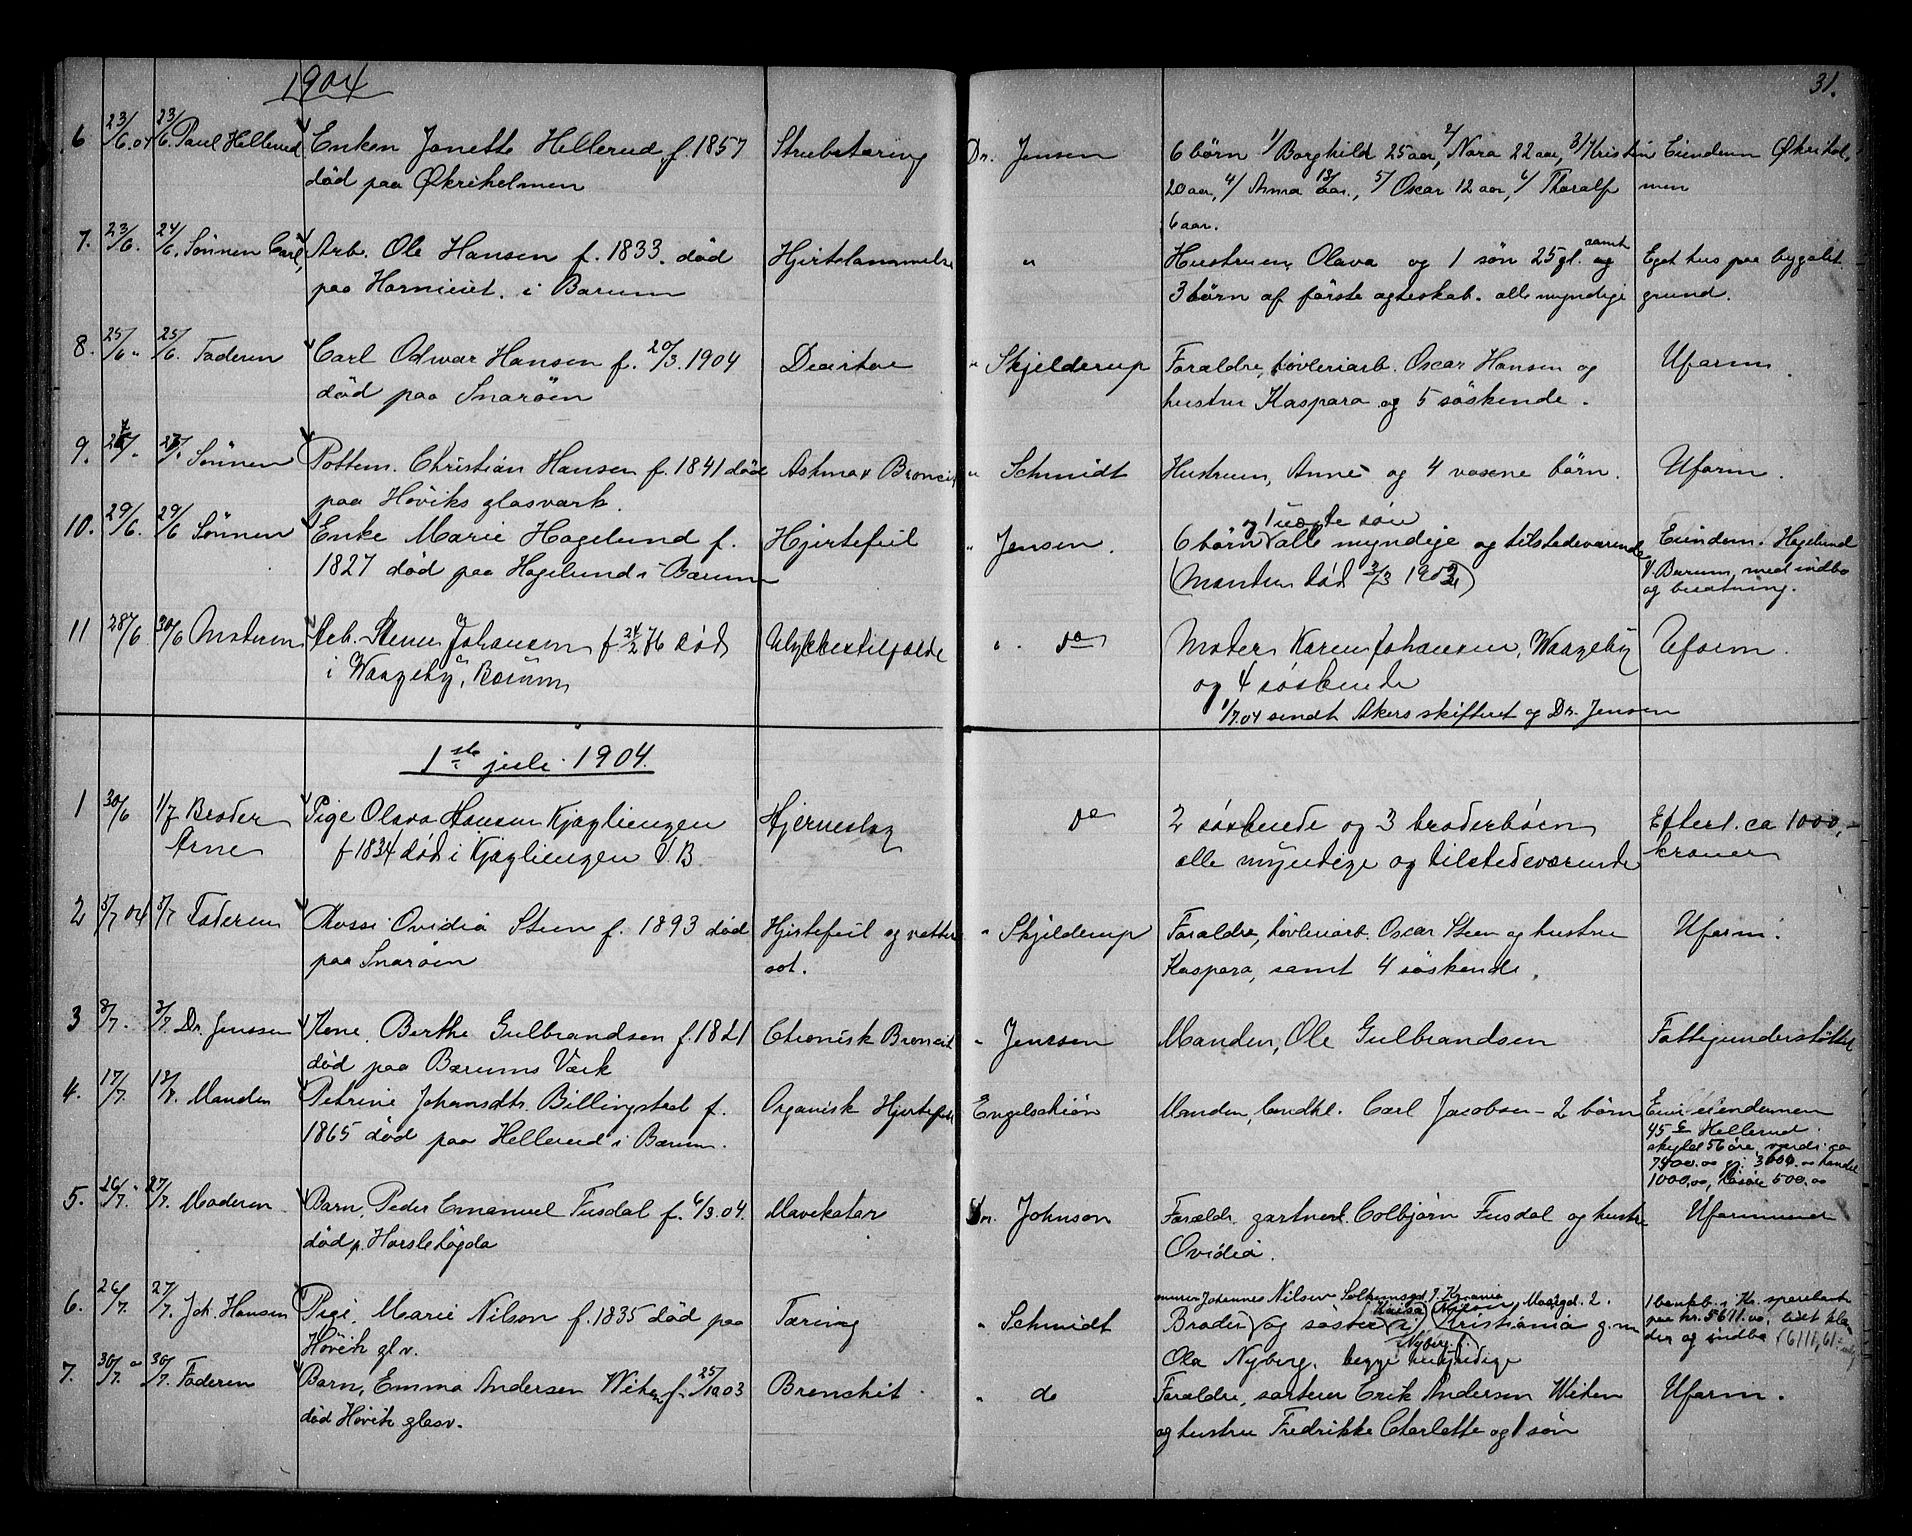 1904
31.
6 23/6.04 23/6. Paul Hellerud Enken Janette Hellerud f. 1857 Strubetæring Dr. Jensen 6 børn 1/ Borghild 25 aar, 2/ Nora 22 aar, 3/ Kristin Eiendom Økrihol-
død paa Økriholmen 20 aar, 4/ Anna 13 aar., 5/ Oscar 12 aar, 6/ Thoralf men
6 aar.
7. 23/6. 24/6. Sønnen Carl, Arb. Ole Hansen f. 1833. død Hjertelammelse " Hustruen, Olava og 1 søn 25 gl. samt og Eget hus paa bygslet
paa i Bærum 3 børn af første ægteskab. alle myndige grund.
8. 25/6 " 25/6. Faderen Carl Odvar Hansen f. 20/3. 1904 " Skjelderup Forældre, høvleriarb. Oscar Hansen og Uform.
død paa Snarøen hustru Kaspara og 5 søskende.
9. Sønnen Pottem. Christian Hansen f. 1841 død Astma & Broncit " Schmidt Hustruen, Anne og 4 voxne børn. Uform.
paa Høviks glasværk.
og 1 uægte søn
10. 29/6. 29/6 Sønnen Enke Marie Hagelund f. Hjertefeil " Jensen. 6 børn alle myndige og tilstedeværende Eiendom. Hagelund
1827 død paa Hagelund i Bærum (Manden død 3/3 1902) V. Bærum, med indbo
og besætning.
11 28/6 30/6 Moderen Arb. Johansen f 24/2 76 død Ulykkestilfælde " do Moder Karen Johansen, Waageby Uform.
i Waageby, Bærum og 4 søskende
1/7.04 sendt Akers skifteret og Dr. Jensen
1ste juli 1904.
1 30/6 1/7 Broder Pige Olava Hansen Kjagliengen Hjerneslag do 2 søskende og 3 broderbørn Efterl. ca 1000,-
Arne f 1834 død i Kjagliengen V. B. alle myndige og tilstedeværende kroner
2 5/7 04 5/7 Faderen Rossi Ovidia Steen f. 1893 død Hjertefeil og vatter- " Skjelderup Forældre, høvleriarb. Oscar Steen og hustru Uform.
paa Snarøen sot. Kaspara, samt 4 søskende.
3 8/7. Dr. Jenssen Kone. Berthe Gulbrandsen f. 1821 Chronisk Broncit " Jenssen Manden, Ole Gulbrandsen Fattigunderstøttet
død paa Bærums Værk
4. 17/7. 18/7. Manden Petrine Johansdtr. Billingstad f. Organisk Hjertefeil Engelschiøn Manden, landhl. Carl Jacobsen - 2 børn Eier eiendommen
1865 død paa Hellerud i Bærum. 45 c Hellerud.
skyld 56 øre, værdi ca
7400.00 gj. 3000.00 handel
1000.00, løsøre 500.00
5. 26/7. 27/7. Moderen Barn, Peder Emanuel Fusdal f. 6/3. 04. Mavekatar Dr. Johnson Forældr. gartnerl. Colbjørn Fusdal og hustru Uformuende
død p. Horslehøgda Ovidia.
murer Johannes Nilsen
6. 26/7. 27/7. Joh. Hansen Pige, Marie Nilson f. 1835 død paa Tæring " Schmidt Broder og søster i Kristiania g. m. 1 bankb. i Kr. sparebank
Høvik gl.v. Ola Nyberg, begge myndige paa kr. 5611.00, lidt klæ-
der og indbo (6111,61
7. 30/7. " 30/7. Faderen Barn, Emma Andersen Witen f. 25/ 1903 Bronchit " do Forældre, sorterer Erik Andersen Witen Uform.
død Høvik glasv. og hustru Fredrikke Charlotte og 1 søn